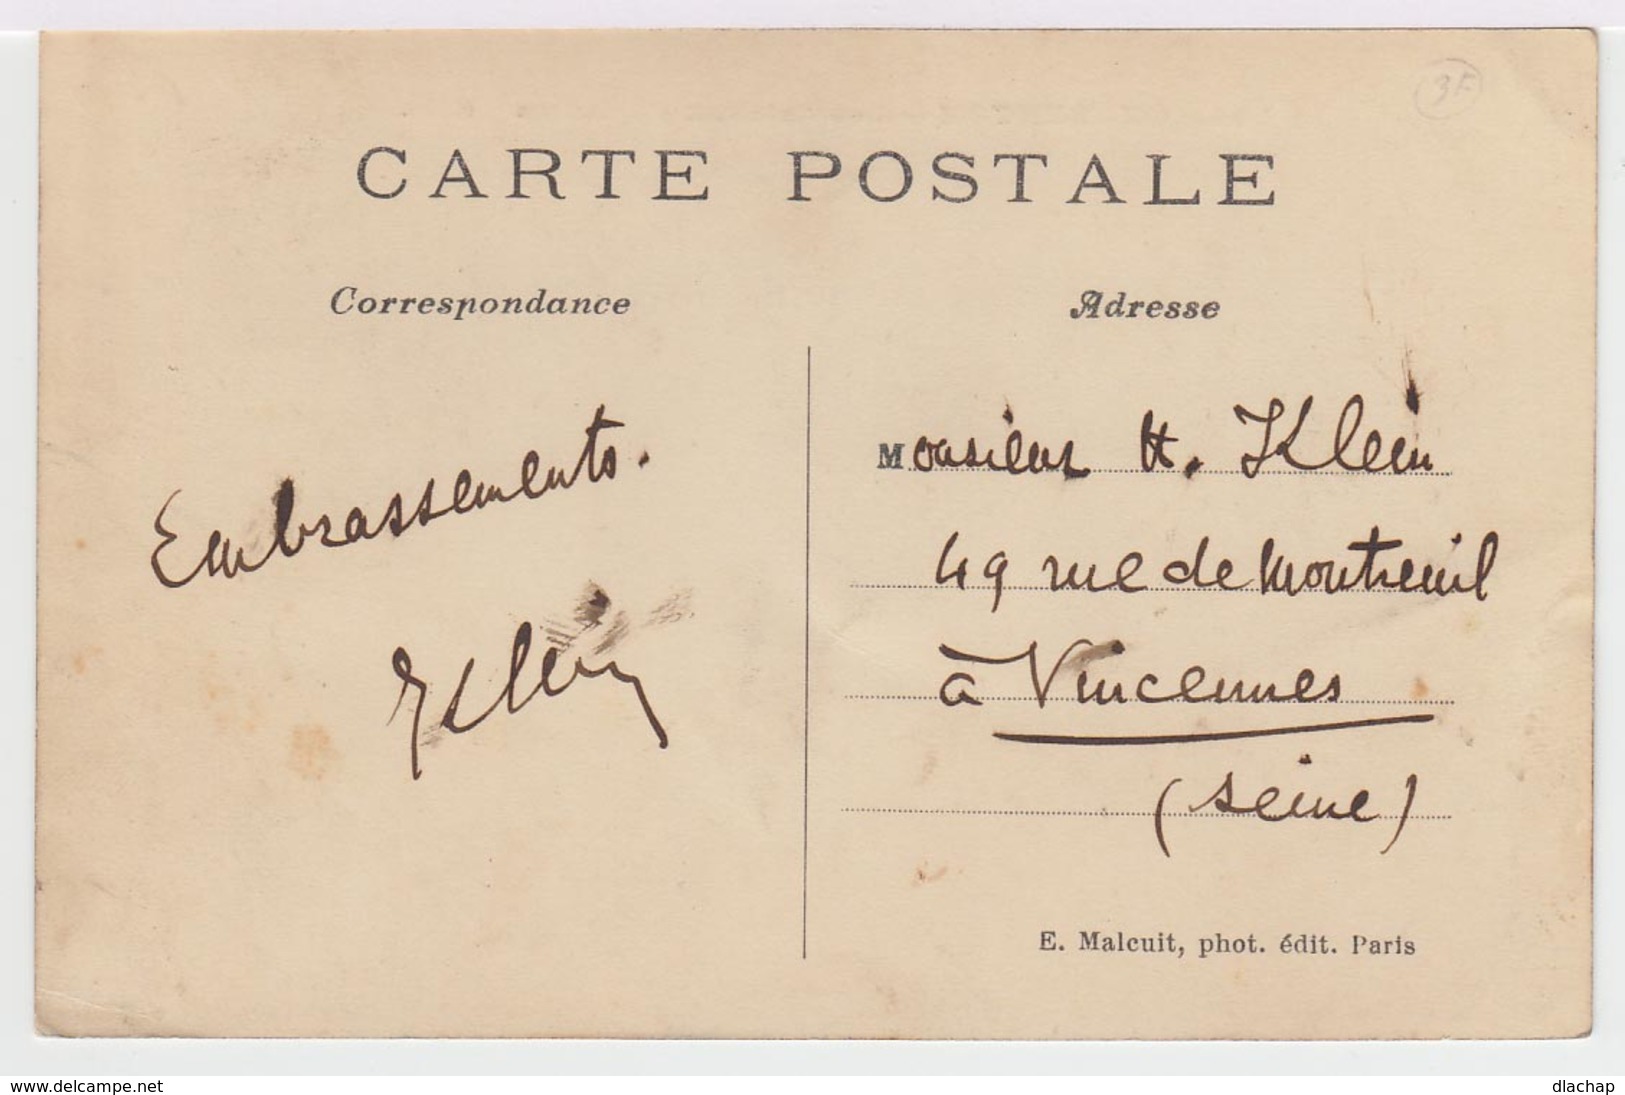 3F
CARTE POSTALE
Correspondance
Adresse
Embrassements.
Klein
Monsieur H. Klein
49 rue de Montreuil
à Vincennes
(Seine)
E. Malcuit, phot. édit. Paris
www.delcampe.net
dlachap